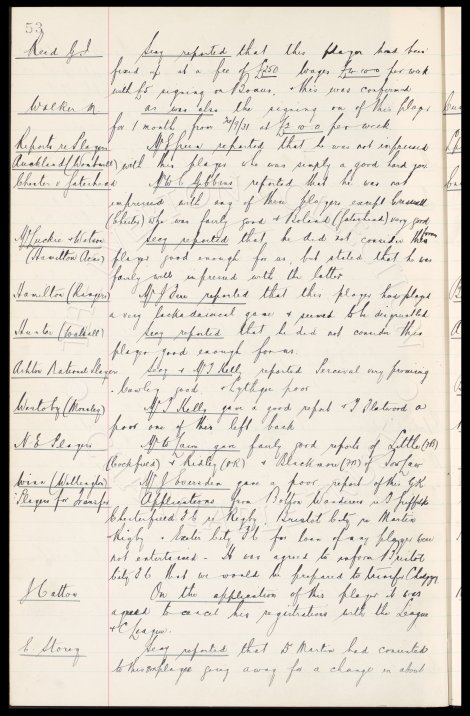 53
Reid G. J. Secy reported that this player had been
fixed up at a fee of £250 wages £4-10-0 per week
with £5 signing on Bonus. & this was confirmed
Walker N. as was also the signing on of this player
for 1 month from /9/31 at £2-0-0 per week
Reports re Players Mr Green reported that he was not impressed
Auckland (Wombwell) with this player who was simply a good hard
Chester v Gateshead Mr W. E. Gibbins reported that he was not
impressed with any of these players except Cresswell
(Chester) who was fairly good & (Gateshead) very good
Watson Secy reported that he did not consider this former
(Hamilton Acas) player good enough for us, but stated that he was
fairly well impressed with the latter
Hamilton (Rangers) Mr reported that this player had played
a very lackadaisical game & seemed to be disgruntled
Hunter (Walsall) Secy reported that he did not consider this
player good enough for us.
Ashton National Players Secy & Mr J Kelly reported Percival very promising
Cawley good & Lythgoe poor
(Worsley) Mr J Kelly gave a good report & J Flatwood a
poor one of this left back
N. E. Players Mr gave fairly good reports of Little
& Ridley (OR) & Blackmore of Tow Law
(Wellington) Mr gave a poor report of this GK
Players for Transfer Applications from Bolton Wanderers re Griffiths
Chesterfield F.C re Rigby, Bristol City re Martin
Rigby & Exeter City F.C for loan of any players were
not entertained - It was agreed to inform Bristol
City F.C that we would be prepared to transfer Chedgzoy
J Catton On the application of this player it was
agreed to cancel his registrations with the League
& C. League.
E. Storey Secy reported that Dr Martin had consented
to this player going away for a change in about